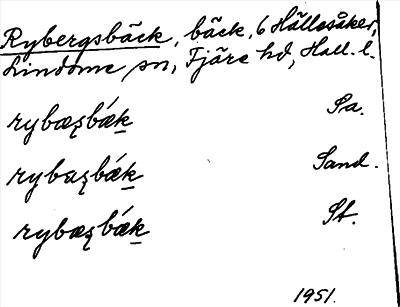 Rybergsbäck, bäck, 6 Hällesåker,
Lindome sn, Fjäre hd, Hall. l.
rybæʂbák̠ Sa.
rybaʂbák̠ Sand.
rybæʂbák̠ St.
1951.